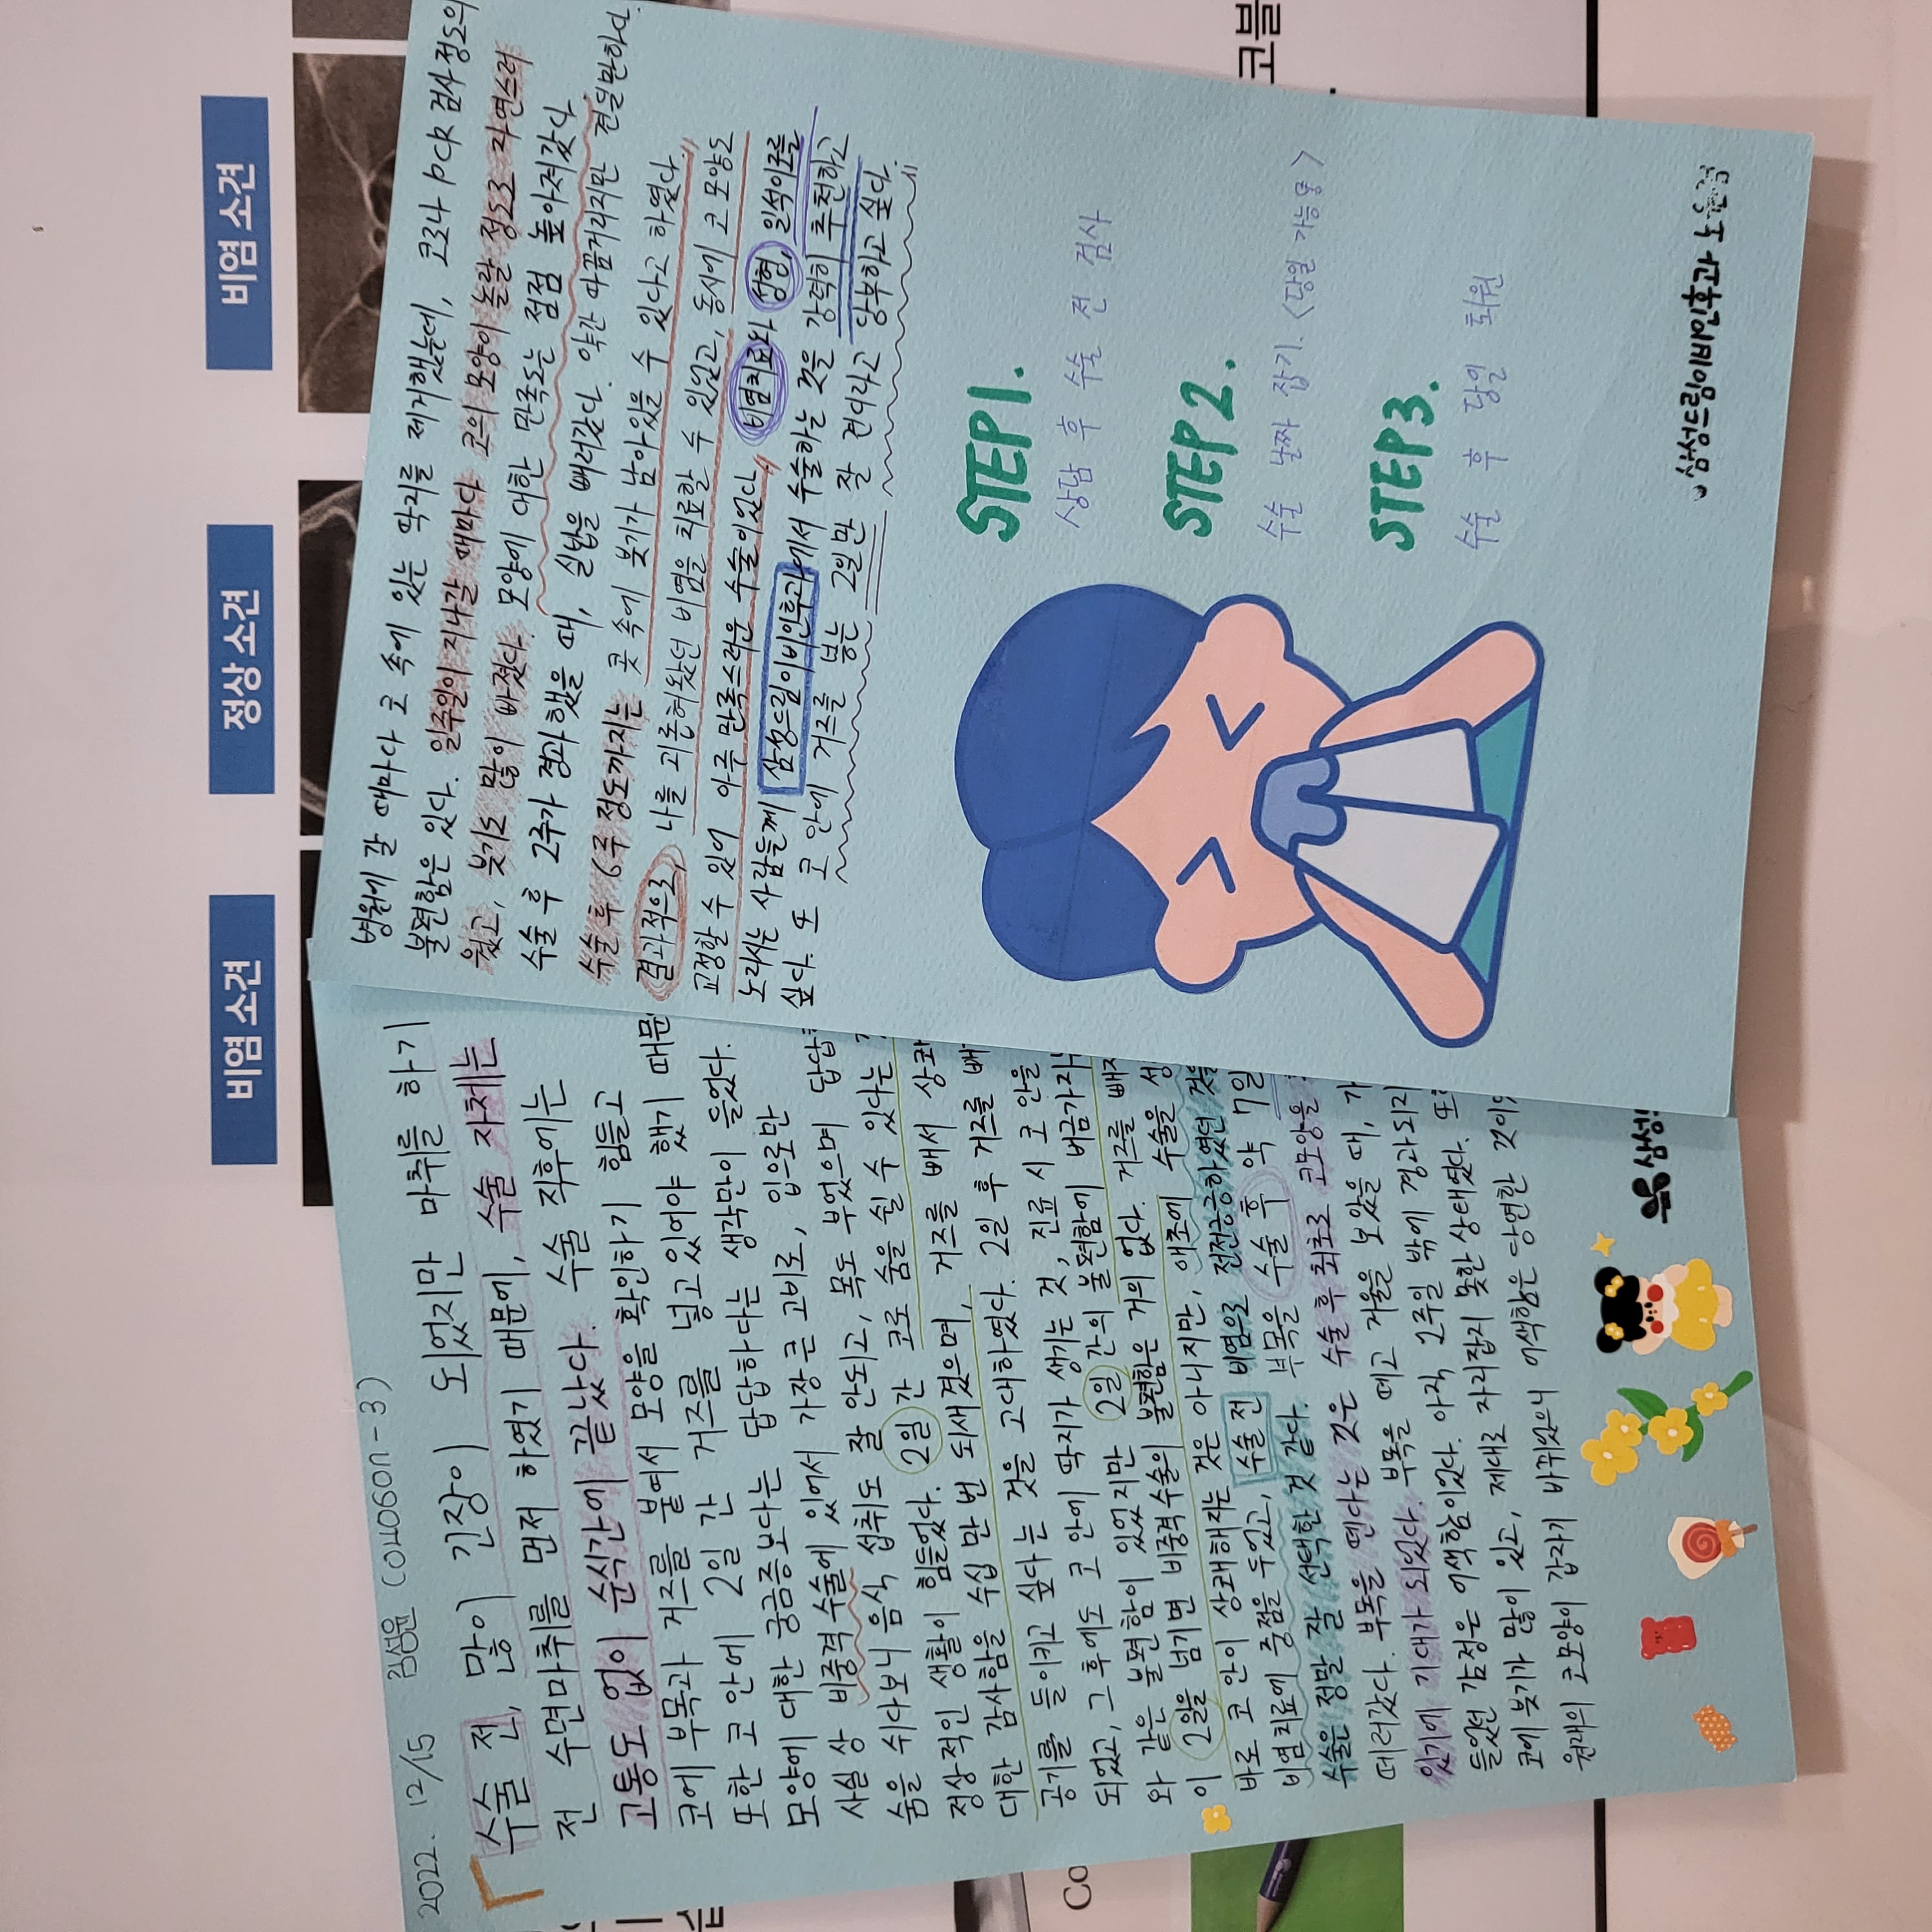 비염 소견
정상 소견
비염 소견
코블
2022. 12/15 김성윤 (040601-3)
수술 전, 많이 긴장이 되었지만 마취를 하기
전 수면마취를 먼저 하였기 때문에, 수술 자체는
고통도 없이 순식간에 끝났다. 수술 직후에는
코에 부목과 거즈를 붙여서 모양을 확인하기 힘들고
또한 코 안에 2일 간 거즈를 넣고 있어야 했기 때문
모양에 대한 궁금증보다는 답답하다는 생각만이 들었다.
사실상 비중격 수술에 있어서 가장 큰 고비로, 입으로만
숨을 쉬다보니 음식 섭취도 잘 안되고, 목도 부었으며 답답
정상적인 생활이 힘들었다. 2일 간 코로 숨을 쉴 수 있다는
대한 감사함을 수십 만 번 되새겼으며, 거즈를 빼서 상쾌
공기를 들이키고 싶다는 것을 고대하였다. 2일 후 거즈를 빼
되었고, 그 후에도 코 안에 딱지가 생기는 것, 진료 시 코 안을
와 같은 불편함이 있었지만 2일 간의 불편함에 버금가지
이 2일을 넘기면 비중격 수술의 불편함은 거의 없다. 거즈를 빼자
바로 코 안이 상쾌해지는 것은 아니지만, 애초에 수술을
비염 치료에 중점을 두었고, 수술 전 비염으로 전전긍긍하였던 것
수술은 정말 잘 선택한 것 같다. 부목을 수술 후 약 7일
떼러갔다. 부목을 뗀다는 것은 수술 후 최초로 코모양을
있기에 기대가 되었다. 부목을 떼고 거울을 보았을 때, 가
들었던 감정은 어색함이었다. 아직 2주일 밖에 경과되지
코에 붓기가 많이 있고, 제대로 자리잡지 못한 상태였다. 또
원래의 코모양이 갑자기 바뀌었으니 어색함은 당연한 것이
삼성
병원에 갈 때마다 코 속에 있는 딱지를 제거했는데, 코로나 PCR 검사 정도의
불편함은 있다. 일주일이 지나갈 때마다 코의 모양이 놀랄 정도로 자연스러
웠고, 붓기도 많이 빠졌다. 모양에 대한 만족도는 점점 높아져갔다
수술 후 2주가 경과했을 때, 실밥을 빼러갔다. 약간 따끔거리지만 견딜만하다.
수술 후 6주 정도까지는 콧 속에 붓기가 남아있을 수 있다고 하였다.
결과적으로, 나를 괴롭혀왔던 비염을 치료할 수 있었고, 동시에 코 모양도
교정할 수 있어 아주 만족스러운 수술이었다. 비염치료와 성형, 일석이조를
노리시는 사람들께 삼성드림이비인후과에서 수술하는 것을 강력히 추천하고
싶다. 또 코 안에 거즈를 넣는 2일만 잘 견디라고 당부하고 싶다.
STEP 1.
상담 후 수술 전 검사
STEP 2.
수술 날짜 잡기. <당일 가능>
STEP 3.
수술 후 당일 퇴원
삼성드림이비인후과
Co